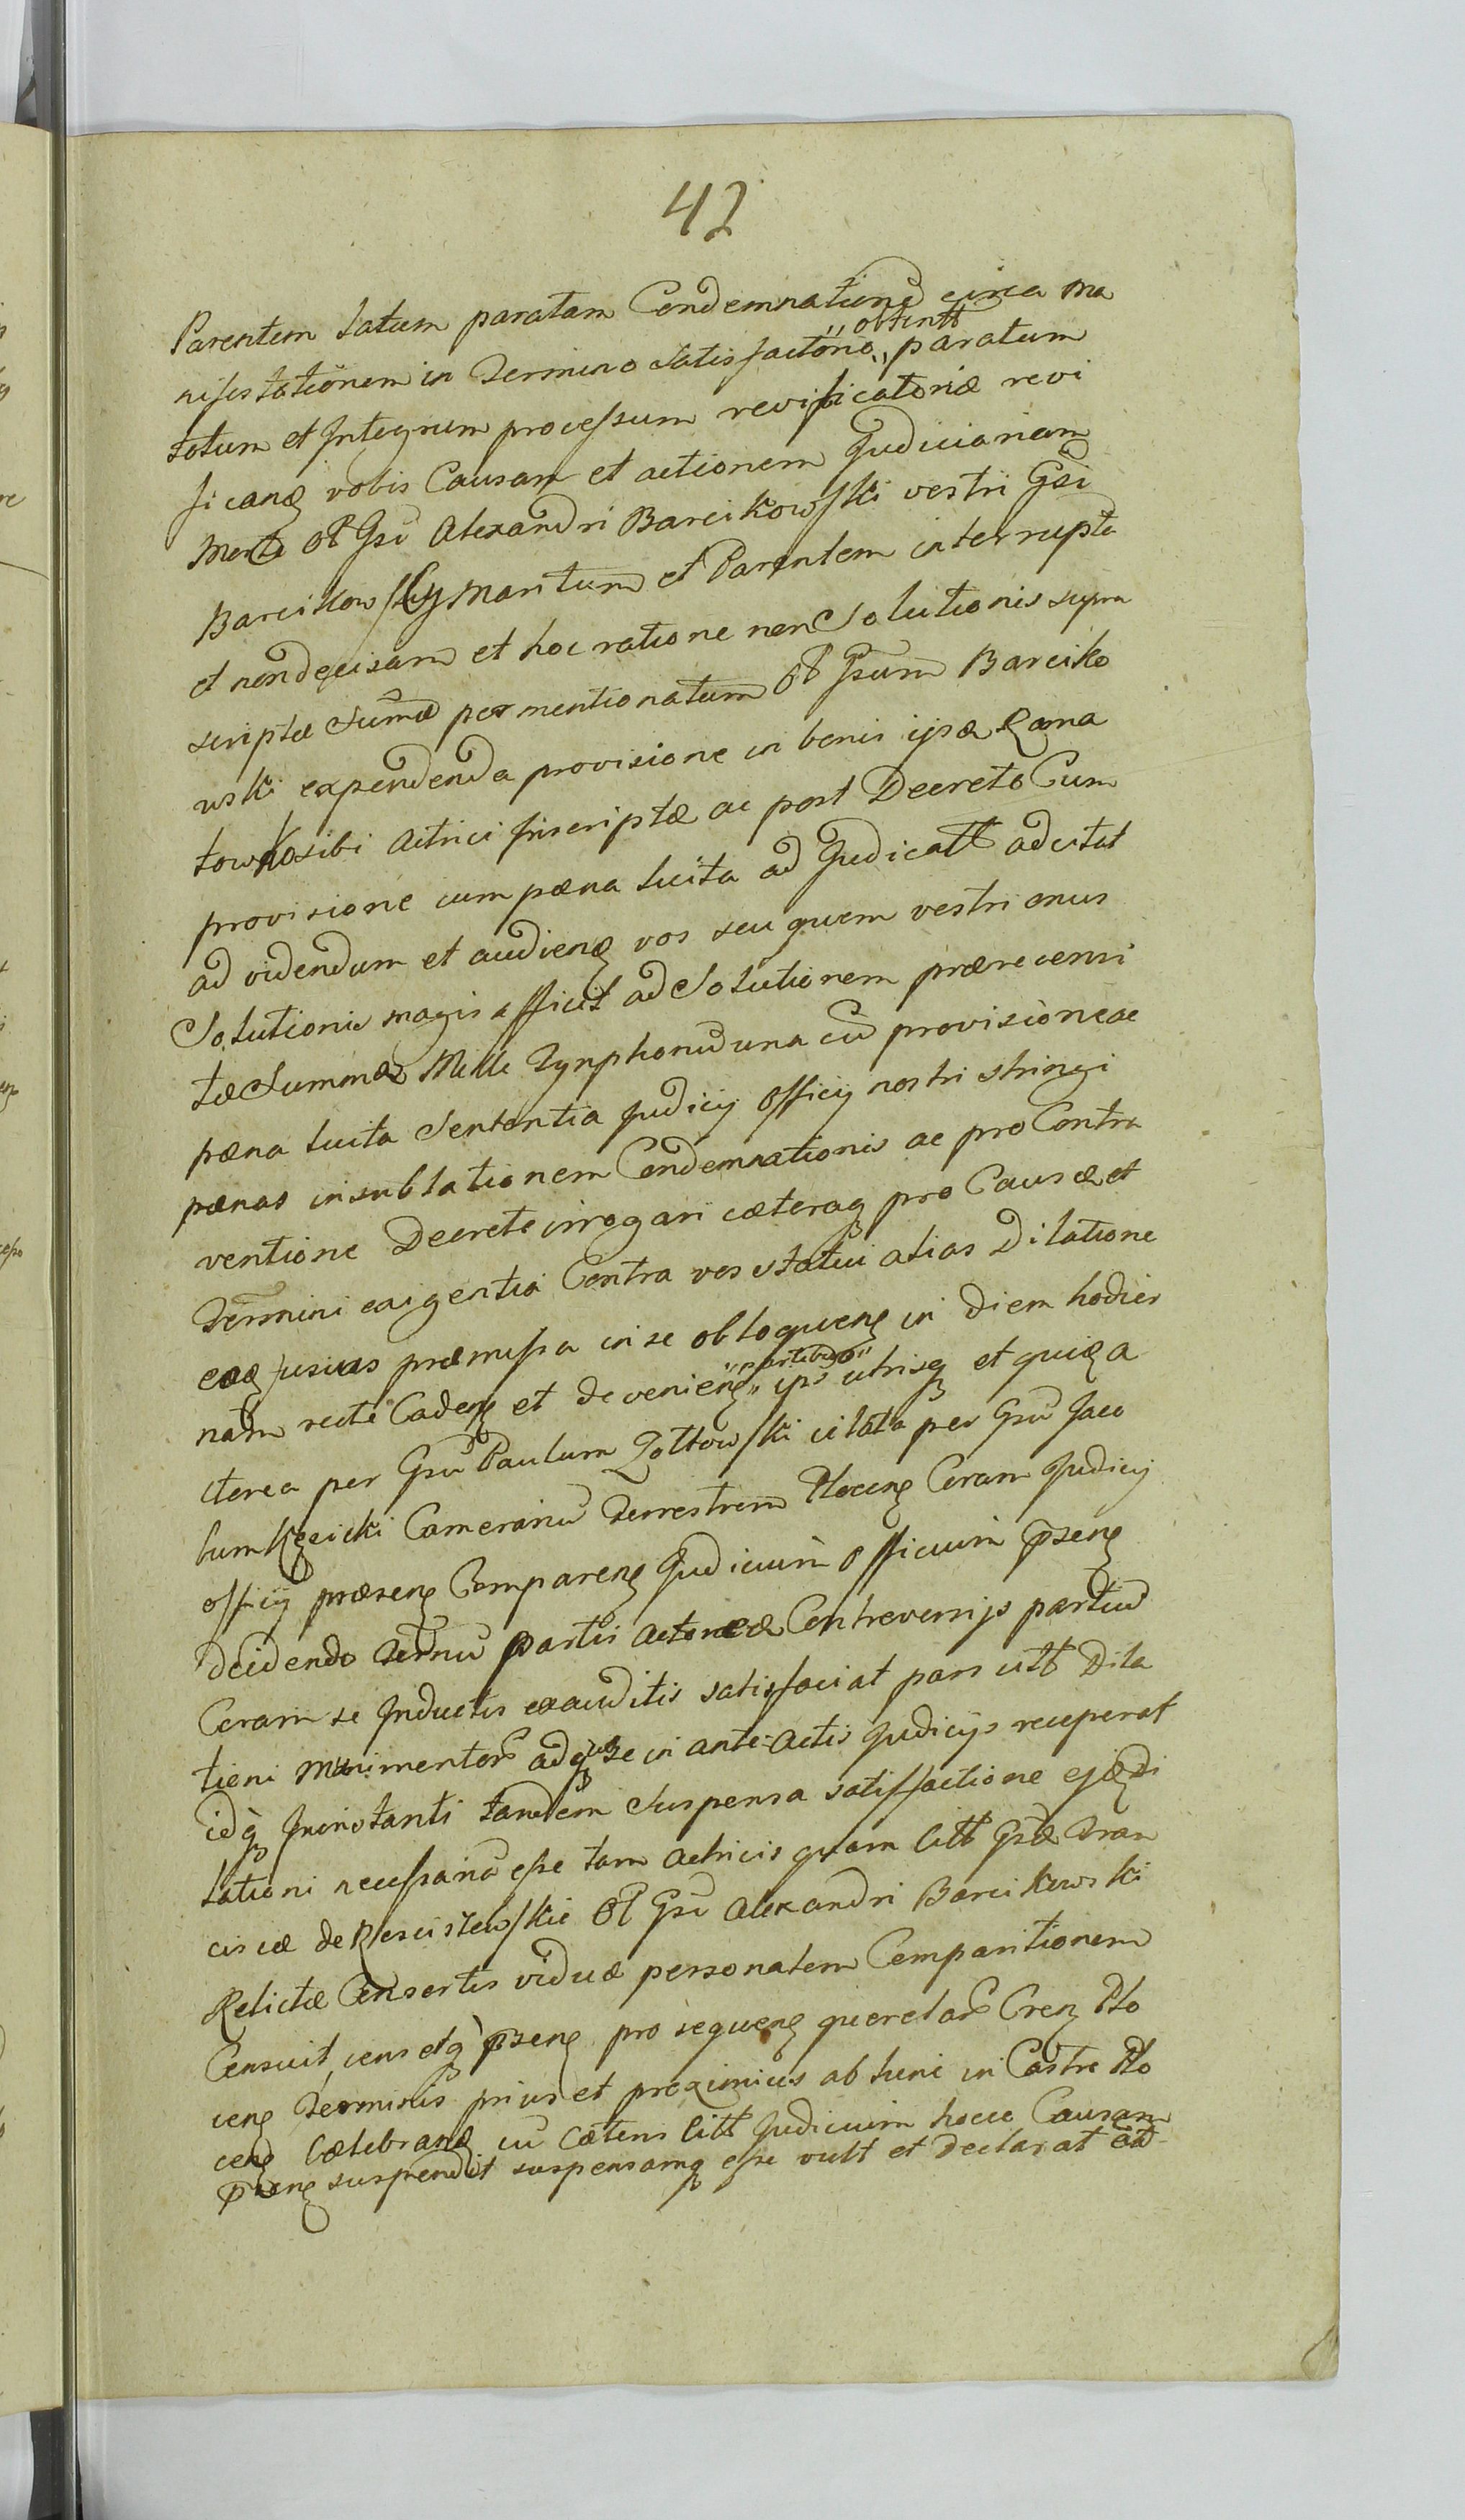 42
Parentem Latum paratam Condemnationē circa ma
nifestationem in Termino Satisfactorio „obtentt„ paratum
totum et Integrum processum revificatoriæ revi
ficanđ vobis Causam et actionem Judiciariam
Morte ol Gsi Alexandri Barcikowski vestri Gsi
Barcikowskij Maritum et Parentem interrupta
et nondecisam et hoc ratione non Solutionis supra
scriptæ Sumæ per mentionatum ol Gsum Barciko
wski expendenda provisione in bonis ipsæ Roma
towko sibi Actrici Inscriptæ ac post Decreto Cum
provisione cum pæna luita ad Judicatt adcitat
ad videndum et audienđ vos seu quem vestri onus
Solutionis magis afficit ad Solutionem prærecensi
tæ Summæ Mille Tynphonū una cū provisione ac
pæna luita Sententia Judicij Officij nostri stringi
pænas in sublationem Condemnationis ac pro Contra
ventione Decreto irrogari cæteraq pro Causæ et
Termini exigentia Contra vos statui alias Dilatione
præmissa in se obloquenđ in diem hodier
nam recte Cadenđ et devenienđ „partibus„ ips utrisq et quiza
cterea per Gsū Paulum Zoltowski citata per Gsū Jaco
bum Kęsicki Camerariū Terrestrem Plocenđ Coram Judicij
Officij præsenđ Comparenđ Judicium Officium pszenđ
decidendo Ternū partis Actoreæ Controversijs partiū
Coram se Inductis exauditis satisfaciat pars citt Dila
tioni Munimentorū adq se in ante=Actis Judicijs receperat
idq Ininstanti tandem Suspensa satisfactione ejædi
lationi necessariū esse tam Actricis quam Citt Gsæ Fran
ciscæ de Rosciszewskie ol Gsi Alexandri Barcikowski
Relictæ Consortis viduæ personalem Comparitionem
Censuit, censetq pszenđ pro sequenđ querelarū Crenđ Plo
cenđ Terminis prius et proximius ab hinc in Castro Plo
cenđ Cælebranđ cū Cæteris Citt Judicium hocce Causam
pszenđ suspendit suspensamq esse vult et declarat